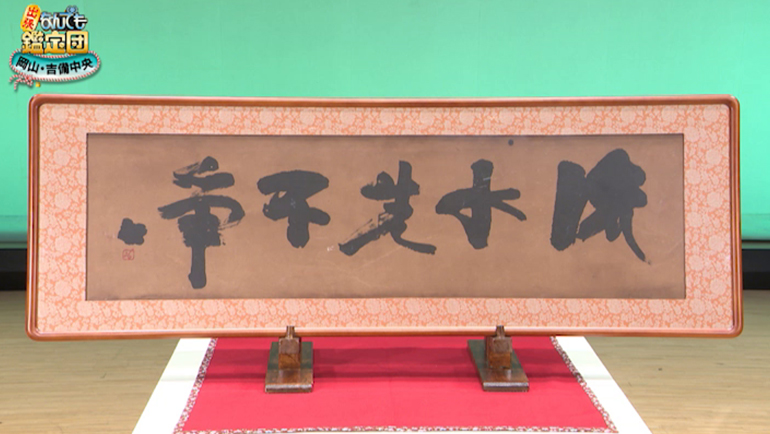 出張
なんでも
鑑定団
岡山・吉備中央
流水先不争